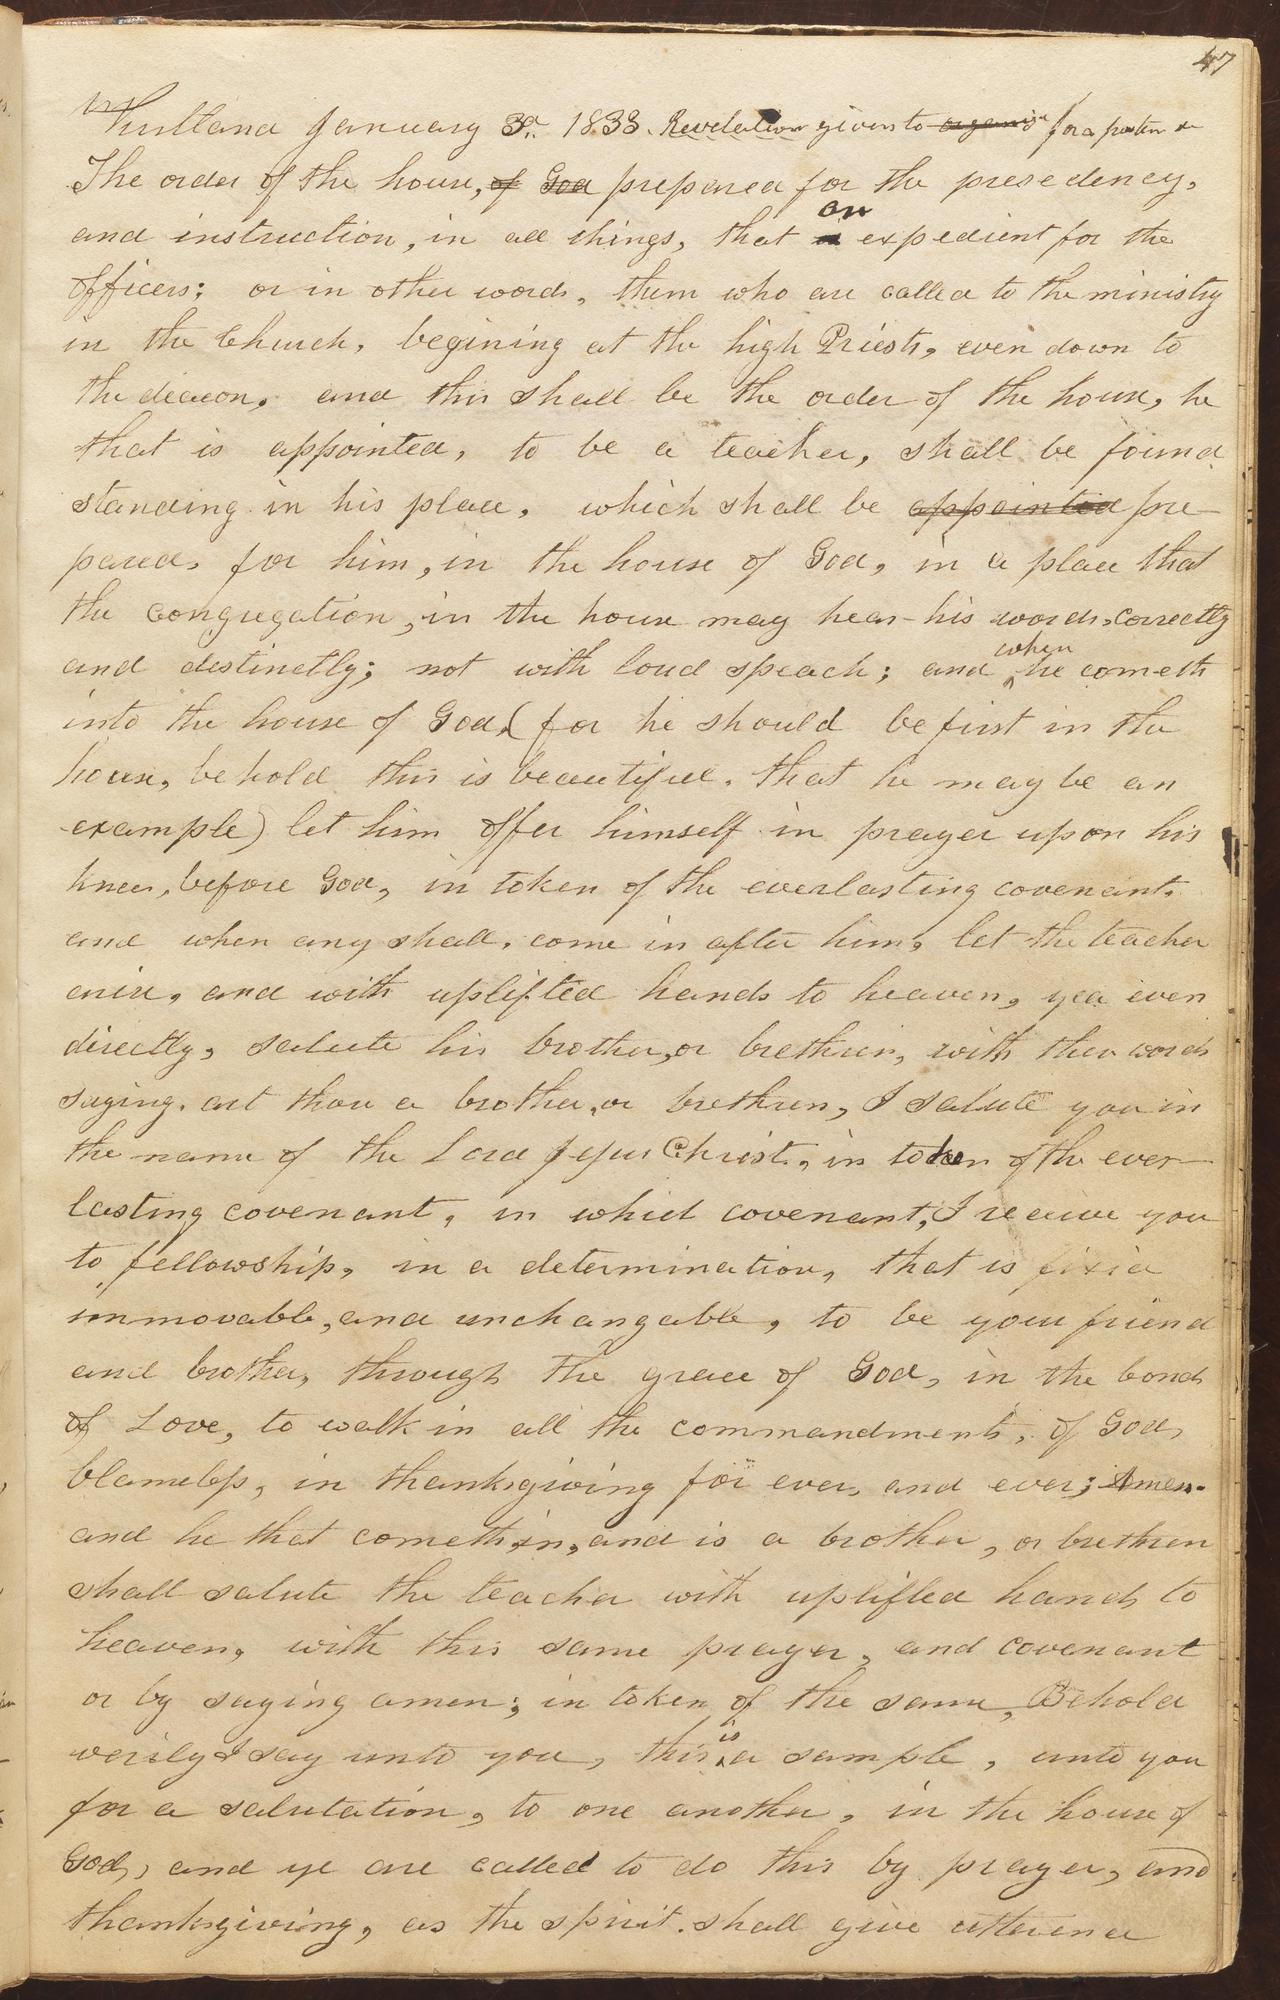 47
Kirtland January 3d. 1833. Revelation given to organize for a pattern &
The order of the house, of God prepared for the presedency,
and instruction, in all things, that is are expedient for the
officers; or in other words, them who are called to the ministry
in the Church, begining at the high Priests, even down to
the deacon. and this shall be the order of the house, he
that is appointed, to be a teacher, shall be found
standing in his place, which shall be appointed pre-
pared, for him, in the house of God, in a place that
the congregation, in the house may hear his words, correctly
when
and destinctly; not with loud speach; and he cometh
into the house of God, (for he should be first in the
house, behold this is beautiful, that he may be an
example) let him offer himself in prayer upon his
knees, before God, in token of the everlasting covenant,
and when any shall, come in after him, let the teacher
arise, and with uplifted hands to heaven, yea even
directly, salute his brother, or brethren, with these words
saying, art thou a brother, or brethren, I salute you in
the name of the Lord Jesus Christ, in token of the ever-
lasting covenant, in which covenant, I receive you
to fellowship, in a determination, that is fixed
immovable, and unchangable, to be your friend
and brother, through the grace of God, in the bonds
of Love, to walk in all the commandments, of God,
blameless, in thanksgiving for ever, and ever; Amen.
and he that cometh in, and is a brother, or brethren
shall salute the teacher with uplifted hands to
heaven, with this same prayer, and covenant
or by saying amen; in token of the same, Behold
is
verily I say unto you, this a sample, unto you
for a salutation, to one another, in the house of
God, and ye are called to do this by prayer, and
thanksgiving, as the spirit shall give utterance